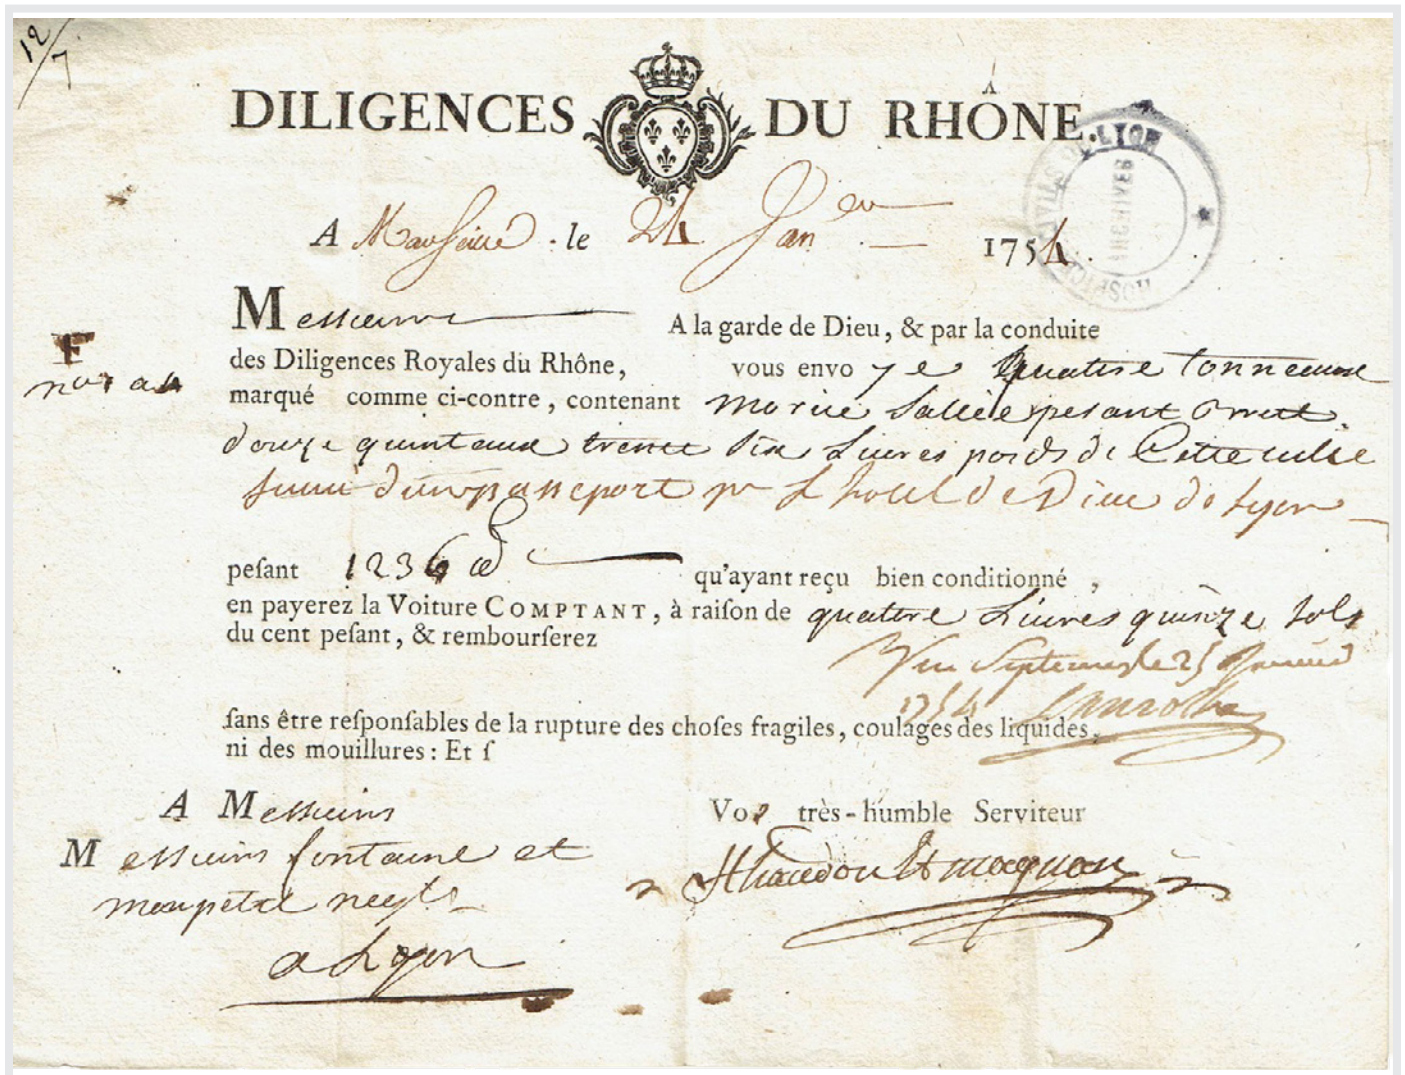 12/7
DILIGENCES DU RHÔNE.
HOSPICES CIVILS DE LYON
ARCHIVES
A Marseille . le 24 Janer 1754.
Messieurs A la garde de Dieu, & par la conduite
des Diligences Royales du Rhône, vous envoye quatre tonneaux
F
marqué comme ci-contre, contenant morue sallée pesant
douze quintaux trente six Livres poids de
suivi d'un passeport pr L'hotel de Dieu de Lyon
peſant 1236 qu'ayant reçu bien conditionné,
en payerez la Voiture COMPTANT, à raiſon de quatre Livres quinze sols
du cent peſant, & rembourſerez
Vu Septemes le 25 Janvier
1754
ſans être reſponſables de la rupture des choſes fragiles, coulages des liquides,
ni des mouillures : Et ſ
A Messieurs Vos très-humble Serviteur
Messieurs fontaine et
negts
a Lyon